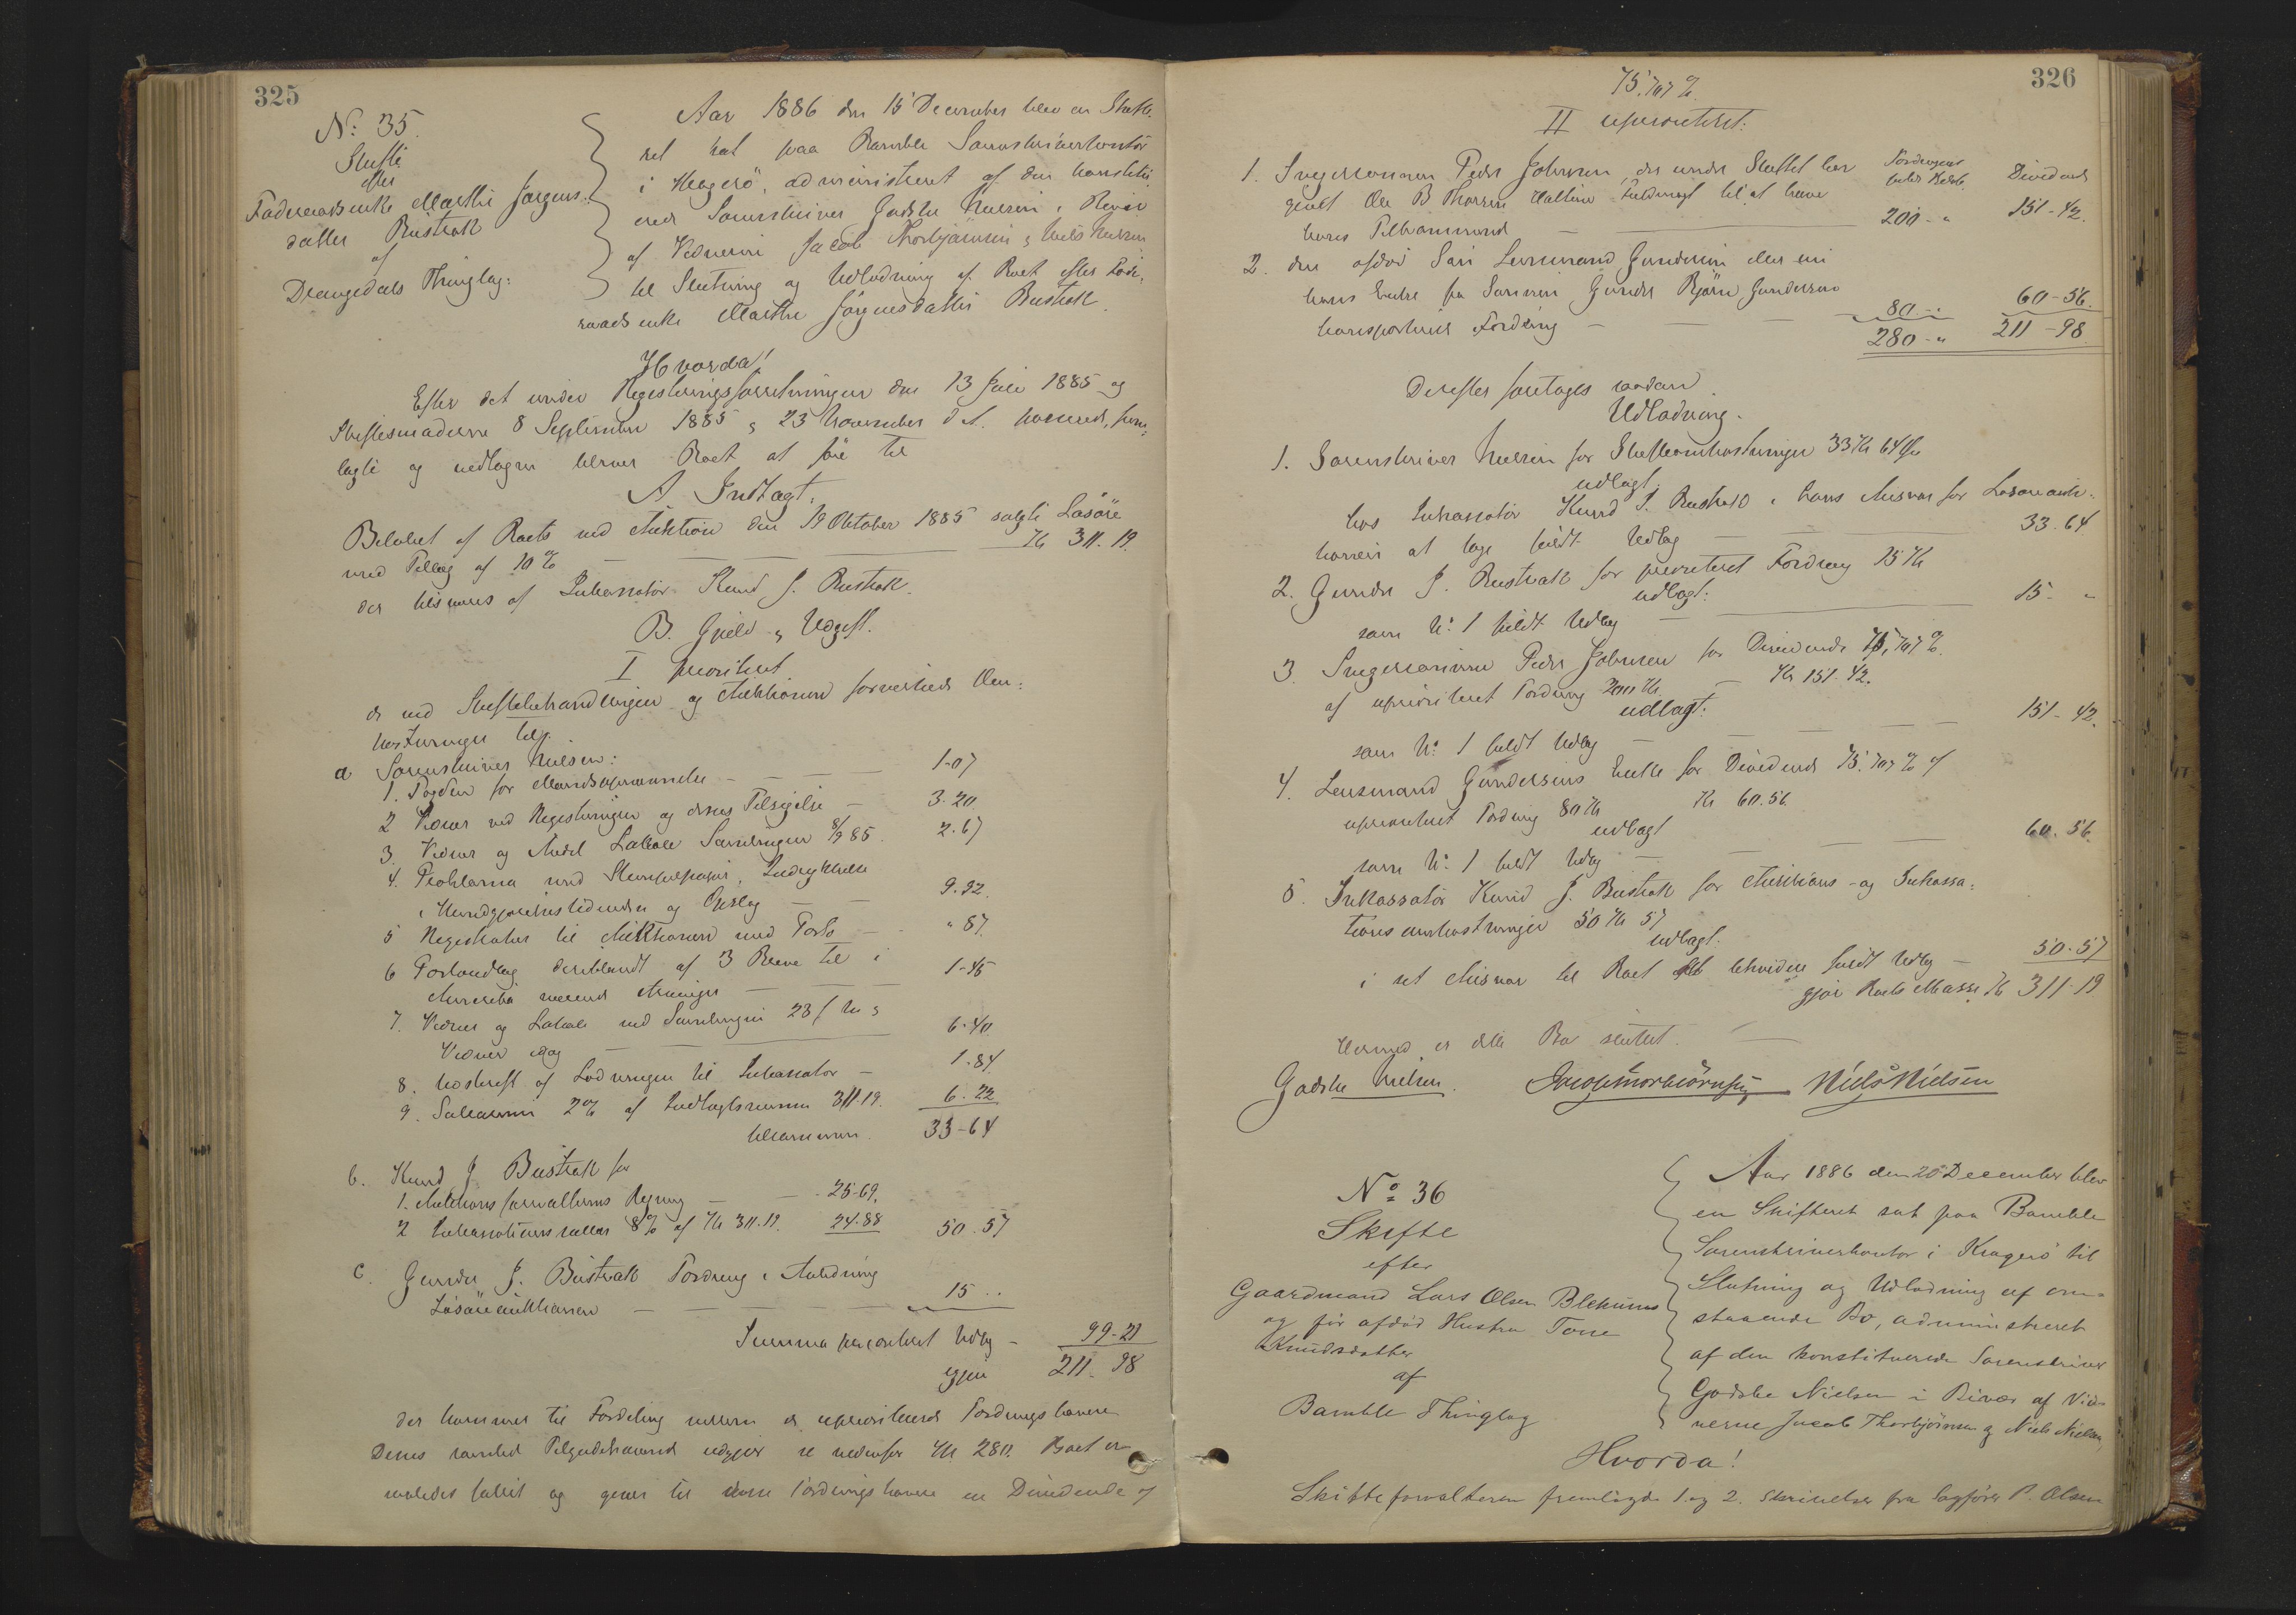 325
No: 35.
Skifte
efter
Føderaadsenke Marthe Jørgens-
datter Bustrak
af
Drangedals Thinglag:
Aar 1886 den 15 December blev en Skifte-
ret sat paa Bamble Sorenskriverkontor
i Kragerø, administreret af den konstitu-
erede Sorenskriver Godske Nielsen i Bivær
af Vidnerne Jacob Thorbjørnsen & Niels Nielsen
til Slutning og Udlodning af Boet efter Føde-
raads enke Marthe Jørgensdatter Bustrak.
Hvorda!
Efter det under Registreringsforretningen den 13 Juli 1885 og
Skiftesamlingerne 8 September 1885 & 23 November d. A. passerede, frem-
lagte og vedtagne bliver Boet at føre til
A Indtægt.
Beløbet af Boets ved Auktion den 19 Oktober 1885 solgte Løsøre
med Tillæg af 10 % — Kr 311.19.
der tilsvares af Inkassator Knud J. Bustrak.
B. Gjeld & Udgift.
I prioriteret
a ved Skiftebehandlingen og Auktionen forvoldede Om-
kostninger
a Sorenskriver Nielsen:
1. Fogden for Mandsopnævnelse — 1-07
2 Vidner ved Registreringen og deres Tilsigelse — 3.20.
3. Vidner og Andel Lokale Samlingen 8/9 85. 2.67
4. Proklama med Stempelpapir, Indrykkelse
i Kundgjørelsestidende og Opslag — 9.92.
5 Registratur til Auktionen med Porto — " 87.
6 Portoudlæg deriblandt af 3 Breve til i
Amerika værende Arvinger — 1-45
7. Vidner og Lokale ved Samlingen 23/11 &
Vidner idag — 6.40
8. Udskrift af Lodningen til Inkassator — 1-84
9. Sallarium 2% af Indtægtssummen 311.19. 6.22
tilsammen. 33-64
b. Knud J Bustrak for
1. Auktionsforvalterens Regning — 25.69.
2 Inkassationssallær 8% af Kr 311.19. 24.88 50.57
c. Gunder J. Bustrak Fordring i Anledning
Løsøreauktionen — 15..
Summa prioriteret Udlæg — 99-21
igjen 211.98
der kommer til Fordeling mellem de uprioriterede Fordringshavere
Deres samlede Tilgodehavende udgjør se nedenfor Kr 280. Boet er
saaledes fallit og giver til disse Fordringshavere en Dividende af
326
75.707 %.
II uprioriteret:
Fordringens
Beløb Dividende
1. Svigersønnen Peder Johnsen, der under Skiftet har
givet Ole B Thorsen Fuldmagt til at hæve
hans Tilkommende — 200-" 151-42.
2. den afdøde Søn Lensmand Gundersen eller nu
hans Enke fra Sønnen Gunder Bjørn Gundersen
transporteret Fordring — 80-" 60-56.
280-" 211-98.
Derefter foretages saadan
Udlodning.
1. Sorenskriver Nielsen for Skifteomkostninger 33 Kr 64 Øre
udlagt:
hos Inkassator Knud J. Bustrak i hans Ansvar for Løsøreauk-
tionen at tage fuldt Udlæg — 33.64
2. Gunder J. Bustrak for prioriteret Fordring 15 Kr
udlagt:
som No. 1 fuldt Udlæg — 15- "
3. Svigersønnen Peder Johnsen for Dividende 75,707 %.
af uprioriteret Fordring 200 Kr. — Kr 151-42.
udlagt:
som No. 1 fuldt Udlæg — 151-42.
4. Lensmand Gundersens Enke for Dividende 75.707 % af
uprioriteret Fordring 80 Kr Kr 60.56
udlagt
som No. 1 fuldt Udlæg — 60.56.
5. Inkassator Knud J. Bustrak for Auktions- og Inkassa-
tions omkostninger 50 Kr 57
udlagt.
i sit Ansvar til Boet fuldt Udlæg — 50-57
gjør Boets Masse Kr 311-19
Hermed er dette Bo sluttet.
Godske Nielsen. Jacob Thorbjørnsen Niels Nielsen
No 36
Skifte
efter
Gaardmand Lars Olsen Blekums
og før afdød Hustru Tone
Knudsdatter
af
Bamble Thinglag
Aar 1886 den 20 December blev
en Skifteret sat paa Bamble
Sorenskriverkontor i Kragerø til
Slutning og Udlodning af om-
staaende Bo, administreret
af den konstituerede Sorenskriver
Godske Nielsen i Bivær af Vid-
nerne Jacob Thorbjørnsen & Niels Nielsen,
Hvorda!
Skifteforvalteren fremlagde 1 og 2. Skrivelser fra Sagfører P. Olsen